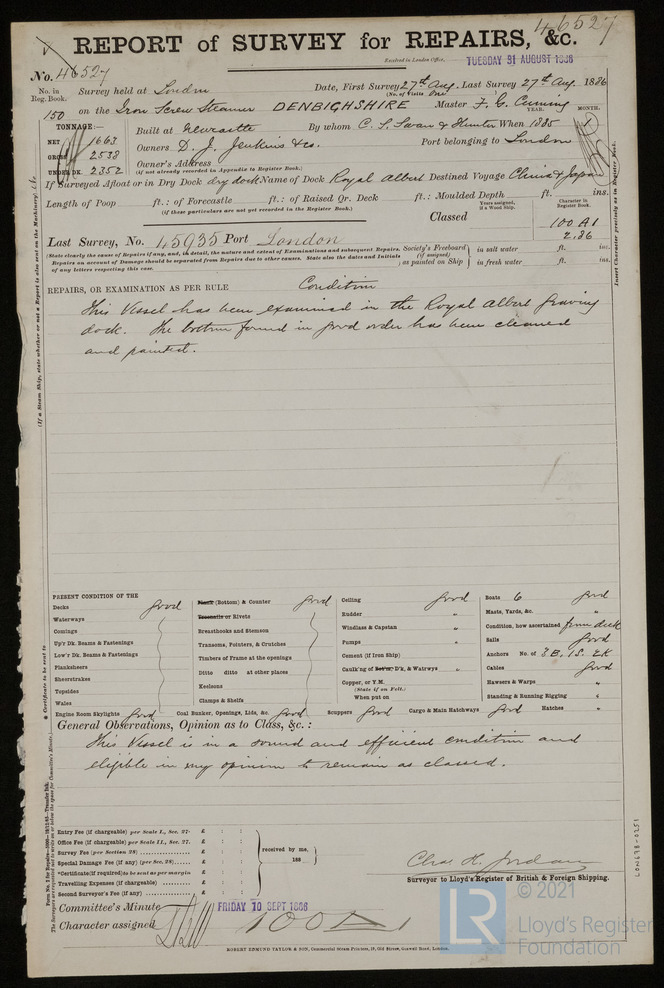 46527
REPORT of SURVEY for REPAIRS, &c.
Received in London Office, TUESDAY 31 AUGUST 1886
No. 46527
No. in Reg. Book. Survey held at London Date, First Survey 27th Aug. Last Survey 27th Aug. 1886
(No. of Visits One)
150 on the Iron Screw Steamer DENBIGHSHIRE Master F. C. Cuming
TONNAGE:— YEAR. MONTH.
NET 1663 Built at Newcastle By whom C. S. Swan & Hunter When 1885
GROSS 2538 Owners D. J. Jenkins & Co. Port belonging to London
UNDER DK. 2352 Owner's Address
(if not already recorded in Appendix to Register Book.)
If Surveyed Afloat or in Dry Dock dry dock Name of Dock Royal Albert Destined Voyage China & Japan
Length of Poop ft.: of Forecastle ft.: of Raised Qr. Deck ft.: Moulded Depth ft. ins.
(if these particulars are not yet recorded in the Register Book.)
Years assigned, if a Wood Ship. Character in Register Book.
Classed 100 A1
2.86
Last Survey, No. 45935 Port London
(State clearly the cause of Repairs if any, and, in detail, the nature and extent of Examinations and subsequent Repairs.
Repairs on account of Damage should be separated from Repairs due to other causes. State also the dates and Initials
of any letters respecting this case.
Society's Freeboard (if assigned) as painted on Ship in salt water ft. ins.
in fresh water ft. ins.
REPAIRS, OR EXAMINATION AS PER RULE Condition
This Vessel has been examined in the Royal Albert Graving
dock. The bottom found in good order has been cleaned
and painted.
PRESENT CONDITION OF THE
Decks good
Waterways
Comings
Up'r Dk. Beams & Fastenings
Low'r Dk. Beams & Fastenings
Planksheers
Sheerstrakes
Topsides
Wales
Engine Room Skylights good
Plank (Bottom) & Counter good
Treenails or Rivets
Breasthooks and Stemson
Transoms, Pointers, & Crutches
Timbers of Frame at the openings
Ditto ditto at other places
Keelsons
Clamps & Shelfs
Coal Bunker, Openings, Lids, &c. good
Ceiling good
Rudder "
Windlass & Capstan "
Pumps "
Cement (if Iron Ship)
Caulk'ng of Bot'm, D'k, & Watrwys "
Copper, or Y.M.
(State if on Felt.)
When put on
Scuppers good Cargo & Main Hatchways good
Boats 6 good
Masts, Yards, &c. "
Condition, how ascertained from deck
Sails good
Anchors No. of 3B. 1S. 2K
Cables good
Hawsers & Warps "
Standing & Running Rigging "
Hatches "
General Observations, Opinion as to Class, &c.:
This Vessel is in a sound and efficient condition and
eligible in my opinion to remain as classed.
Entry Fee (if chargeable) per Scale I., Sec. 27. £ : :
Office Fee (if chargeable) per Scale II., Sec. 27. £ : :
Survey Fee (per Section 28) £ : :
Special Damage Fee (if any) (per Sec. 28) £ : :
*Certificate (if required) to be sent as per margin £ : :
Travelling Expenses (if chargeable) £ : :
Second Surveyor's Fee (if any) £ : :
received by me,
188
Chas. H. Jordan
Surveyor to Lloyd's Register of British & Foreign Shipping.
Committee's Minute FRIDAY 10 SEPT 1886
Character assigned 100 A1
ROBERT EDMUND TAYLOR & SON, Commercial Steam Printers, 19, Old Street, Goswell Road, London.
LON678-0251
LR
© 2021
Lloyd's Register
Foundation